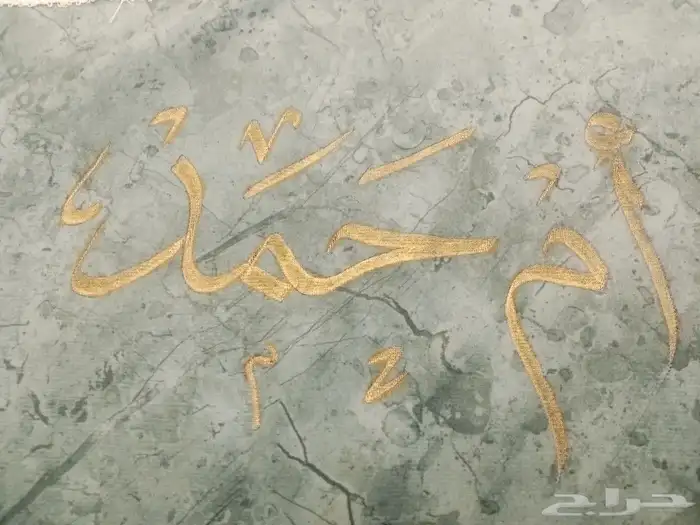 أم حَمَد
حراج